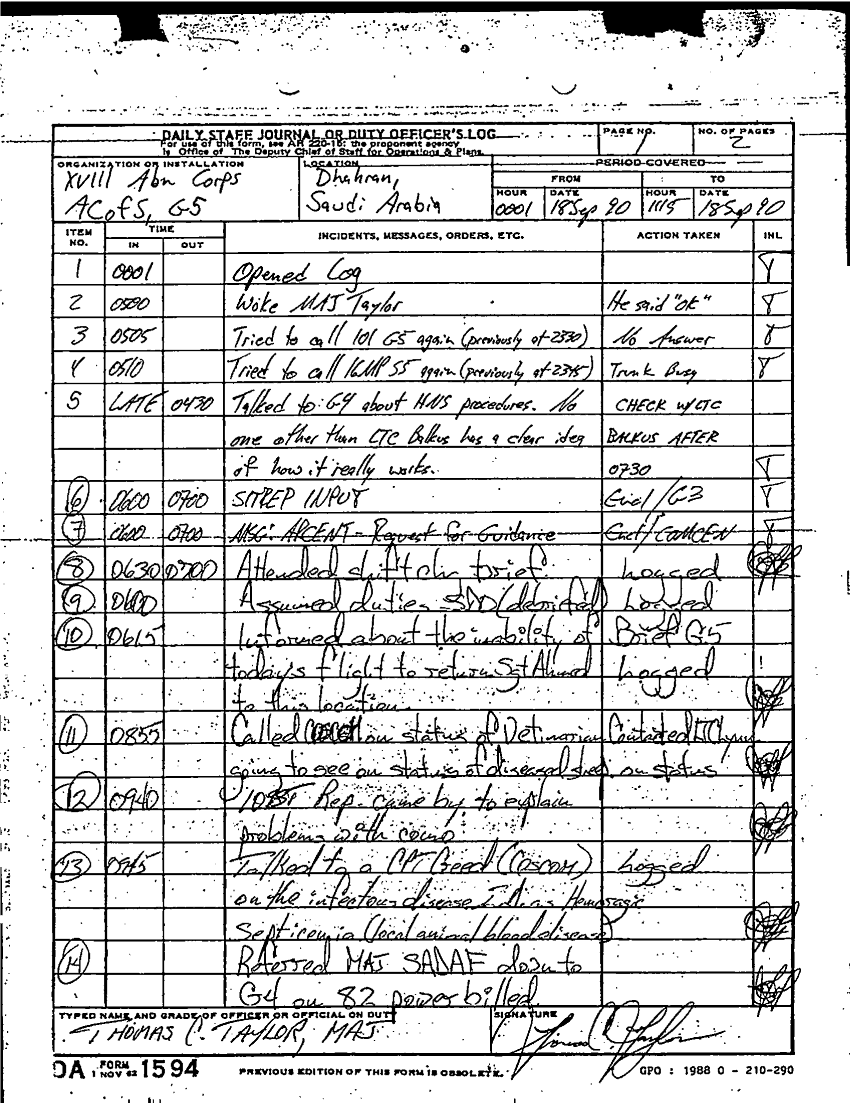 DAILY STAFF JOURNAL OR DUTY OFFICER'S LOG
For use of this form, see AR 220-15; the proponent agency
is Office of The Deputy Chief of Staff for Operations & Plans.
PAGE NO.
1
NO. OF PAGES
2
ORGANIZATION OR INSTALLATION
XVIII Abn Corps
ACofS, G5
LOCATION
Dhahran,
Saudi Arabia
PERIOD COVERED
FROM TO
HOUR DATE HOUR DATE
0001 18 Sep 90 1115 18 Sep 90
ITEM NO. TIME INCIDENTS, MESSAGES, ORDERS, ETC. ACTION TAKEN INL
IN OUT
1 0001 Opened Log
2 0500 Woke MAJ Taylor He said "OK"
3 0505 Tried to call 101 G5 again (previously at 2330) No Answer
4 0510 Tried to call 16MP S5 again (previously at 2345) Trunk Busy
5 LATE 0430 Talked to G4 about HNS procedures. No CHECK w/LTC
one other than LTC Balkus has a clear idea BALKUS AFTER
of how it really works. 0730
6 0600 0700 SITREP INPUT Encl/G3
7 0600 0700 MSG: ARCENT - Request for Guidance Encl/COMCEN
8 0630 0700 Attended shift chg brief. Logged
9 0600 Assumed duties SDO (debriefed) Logged
10 0615 Informed about the inability of Brief G5
today's flight to return Sgt Ahmed Logged
to this location.
11 0855 Called on status of Contacted
going to see on status of diseased sheep on status
12 0940 Rep. came by to explain
problems with
13 0945 Talked to a CPT Geed (COSCOM) Logged
on the infectous disease
Septicemia (local animal blood disease)
14 Referred MAJ SADAF down to
G4 on 82 power billed.
TYPED NAME AND GRADE OF OFFICER OR OFFICIAL ON DUTY
THOMAS C. TAYLOR, MAJ
SIGNATURE
Thomas C. Taylor
DA FORM 1 NOV 62 1594
PREVIOUS EDITION OF THIS FORM IS OBSOLETE.
GPO : 1988 O - 210-290